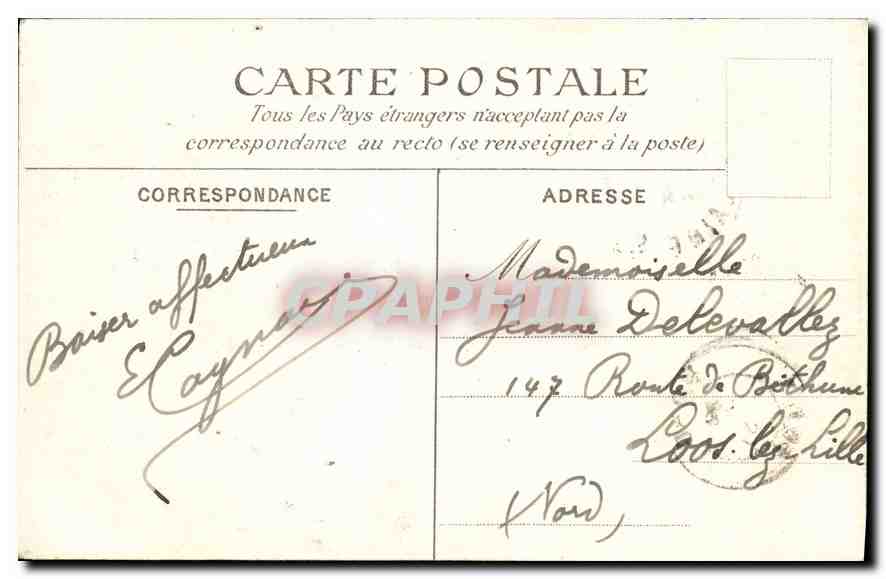 CARTE POSTALE
Tous les Pays étrangers n'acceptant pas la
correspondance au recto (se renseigner à la poste)
CORRESPONDANCE
ADRESSE
Baiser affectueux
E
CPAPHIL
Mademoiselle
Jeanne Delevallez
147 Route de Béthune
Loos-lez-Lille
(Nord)